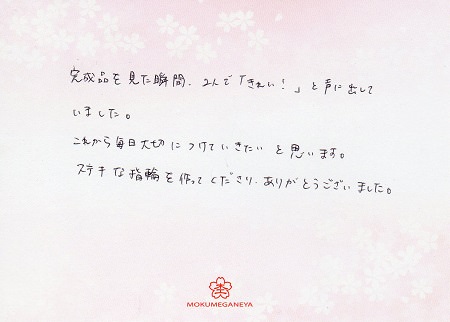 完成品を見た瞬間、2人で「きれい!」と声に出して
いました。
これから毎日大切につけていきたいと思います。
ステキな指輪を作ってくださり、ありがとうございました。
MOKUMEGANEYA